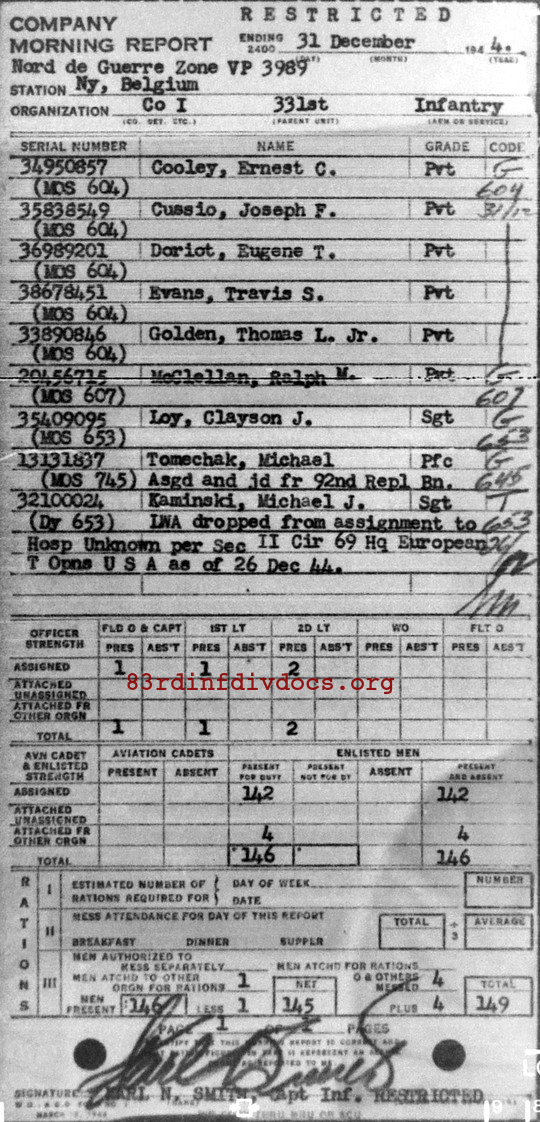 RESTRICTED
COMPANY
MORNING REPORT ENDING 2400 31 December 194 4.
(DAY) (MONTH) (YEAR)
Nord de Guerre Zone VP 3989
STATION Ny, Belgium
ORGANIZATION Co I 331st Infantry
(CO. DET. ETC.) (PARENT UNIT) (ARM OR SERVICE)
SERIAL NUMBER NAME GRADE CODE
34950857 Cooley, Ernest C. Pvt G
(MOS 604) 604
35838549 Cussio, Joseph F. Pvt 31/12
(MOS 604)
36989201 Doriot, Eugene T. Pvt
(MOS 604)
38678451 Evans, Travis S. Pvt
(MOS 604)
33890846 Golden, Thomas L. Jr. Pvt
(MOS 604)
20456715 McClellan, Ralph M. Pvt G
(MOS 607) 607
35409095 Loy, Clayson J. Sgt G
(MOS 653) 653
13131837 Tomechak, Michael Pfc G
(MOS 745) Asgd and jd fr 92nd Repl Bn. 645
32100024 Kaminski, Michael J. Sgt T
(Dy 653) LWA dropped from assignment to 653
Hosp Unknown per Sec II Cir 69 Hq European 26/
T Opns U S A as of 26 Dec 44.
OFFICER STRENGTH FLD O & CAPT 1ST LT 2D LT WO FLT O
PRES ABS'T PRES ABS'T PRES ABS'T PRES ABS'T PRES ABS'T
ASSIGNED 1 1 2
83rdinfdivdocs.org
ATTACHED UNASSIGNED
ATTACHED FR OTHER ORGN
TOTAL 1 1 2
AVN CADET & ENLISTED STRENGTH AVIATION CADETS ENLISTED MEN
PRESENT ABSENT PRESENT FOR DUTY PRESENT NOT FOR DY ABSENT PRESENT AND ABSENT
ASSIGNED 142 142
ATTACHED UNASSIGNED
ATTACHED FR OTHER ORGN 4 4
TOTAL 146 146
RATIONS
I ESTIMATED NUMBER OF RATIONS REQUIRED FOR { DAY OF WEEK DATE NUMBER
II MESS ATTENDANCE FOR DAY OF THIS REPORT
BREAKFAST DINNER SUPPER TOTAL ÷ 3 AVERAGE
III MEN AUTHORIZED TO MESS SEPARATELY MEN ATCHD FOR RATIONS
MEN ATCHD TO OTHER ORGN FOR RATIONS 1 NET O & OTHERS MESSED 4 TOTAL
MEN PRESENT 146 LESS 1 145 PLUS 4 149
PAGE 1 OF 1 PAGES
SIGNATURE EARL N. SMITH, Capt Inf. RESTRICTED